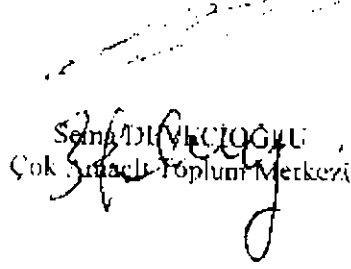 Sema DEVECİOĞLU
Çok Amaçlı Toplum Merkezi